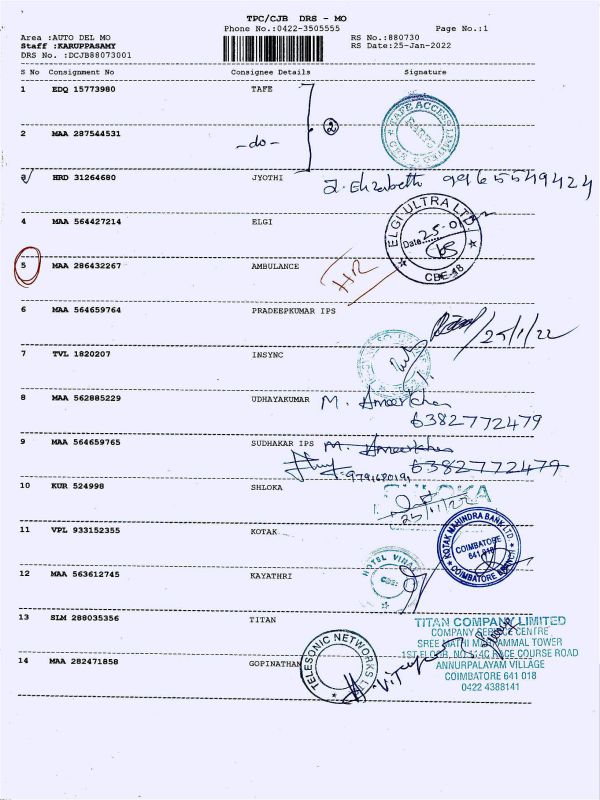 TPC/CJB DRS - MO
Phone No.:0422-3505555 Page No.:1
Area :AUTO DEL MO RS No.:880730
Staff :KARUPPASAMY RS Date:25-Jan-2022
DRS No. :DCJB88073001
S No Consignment No Consignee Details Signature
1 EDQ 15773980 TAFE
TAFE ACCESS LIMITED
2 MAA 287544531 -do- 2
3 HRD 31264680 JYOTHI J. Elizabeth 9965549424
4 MAA 564427214 ELGI
ELGI ULTRA LTD.
Date: 25-01-22
CBE-18
5 MAA 286432267 AMBULANCE HR
6 MAA 564659764 PRADEEPKUMAR IPS
25/1/22
7 TVL 1820207 INSYNC
8 MAA 562885229 UDHAYAKUMAR M. Ameerkhan
6382772479
9 MAA 564659765 SUDHAKAR IPS M. Ameerkhan
9791620191 6382772479
10 KUR 524998 SHLOKA
SHLOKA
25/1/22
11 VPL 933152355 KOTAK
KOTAK MAHINDRA BANK LTD.
COIMBATORE
641 018
COIMBATORE BRANCH
12 MAA 563612745 KAYATHRI
HOTEL VINAYA
CBE
13 SLM 288035356 TITAN
TITAN COMPANY LIMITED
COMPANY SERVICE CENTRE
SREE MATHI MUTHAMMAL TOWER
1ST FLOOR, NO.1:14C RACE COURSE ROAD
ANNURPALAYAM VILLAGE
COIMBATORE 641 018
0422 4388141
14 MAA 282471858 GOPINATHAN
TELESONIC NETWORKS L